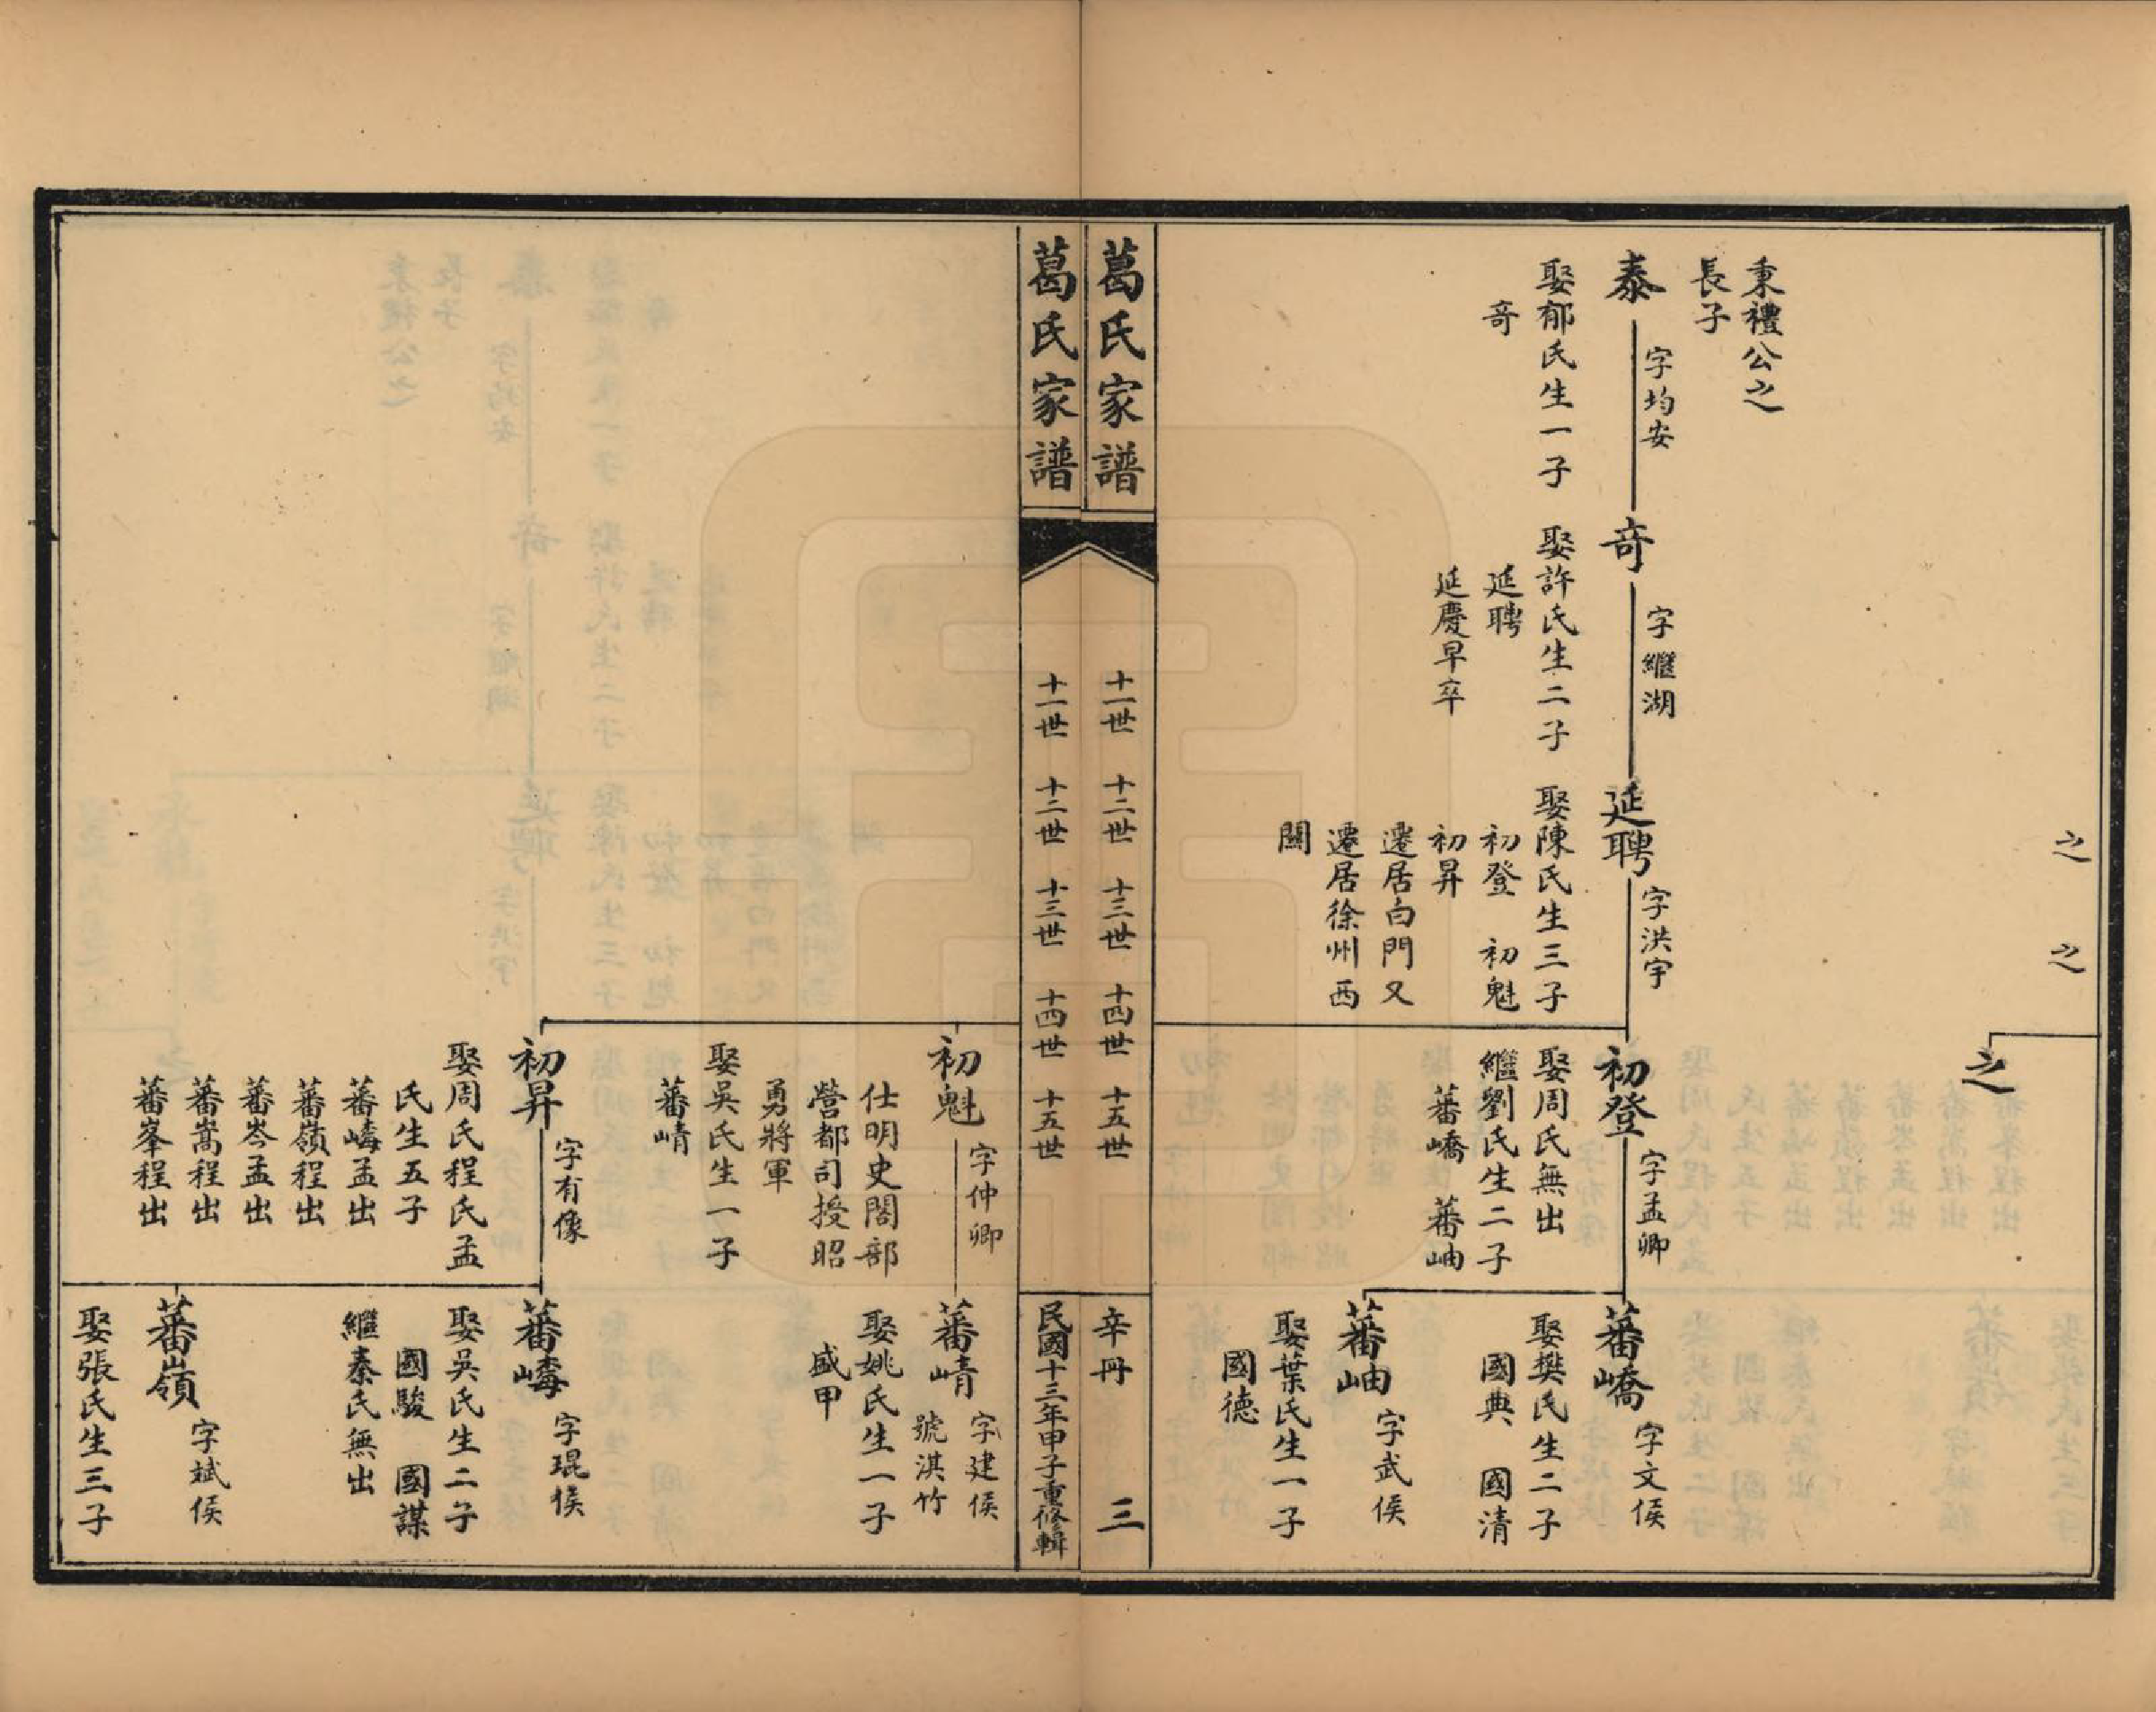 之
之
之
秉禮公之
長子
泰
字均安
娶郁氏生一子
奇
奇
字繼湖
娶許氏生二子
延聘
延慶早卒
延聘
字洪宇
娶陳氏生三子
初登 初魁
初昇
遷居白門又
遷居徐州西
關
初登
字孟卿
娶周氏無出
繼劉氏生二子
蕃嶠 蕃岫
蕃嶠
字文侯
娶樊氏生二子
國典 國清
蕃岫
字武侯
娶葉氏生一子
國德
葛氏家譜
十一世 十二世 十三世 十四世 十五世
辛冊 三
葛氏家譜
十一世 十二世 十三世 十四世 十五世
民國十三年甲子重修輯
初魁
字仲卿
仕明史閣部
營都司授昭
勇將軍
娶吳氏生一子
蕃崝
蕃崝
字建侯
號淇竹
娶姚氏生一子
盛甲
初昇
字有像
娶周氏程氏孟
氏生五子
蕃㟩孟出
蕃嶺程出
蕃岑孟出
蕃嵩程出
蕃峯程出
蕃㟩
字琨侯
娶吳氏生二子
國駿 國謀
繼秦氏無出
蕃嶺
字斌侯
娶張氏生三子